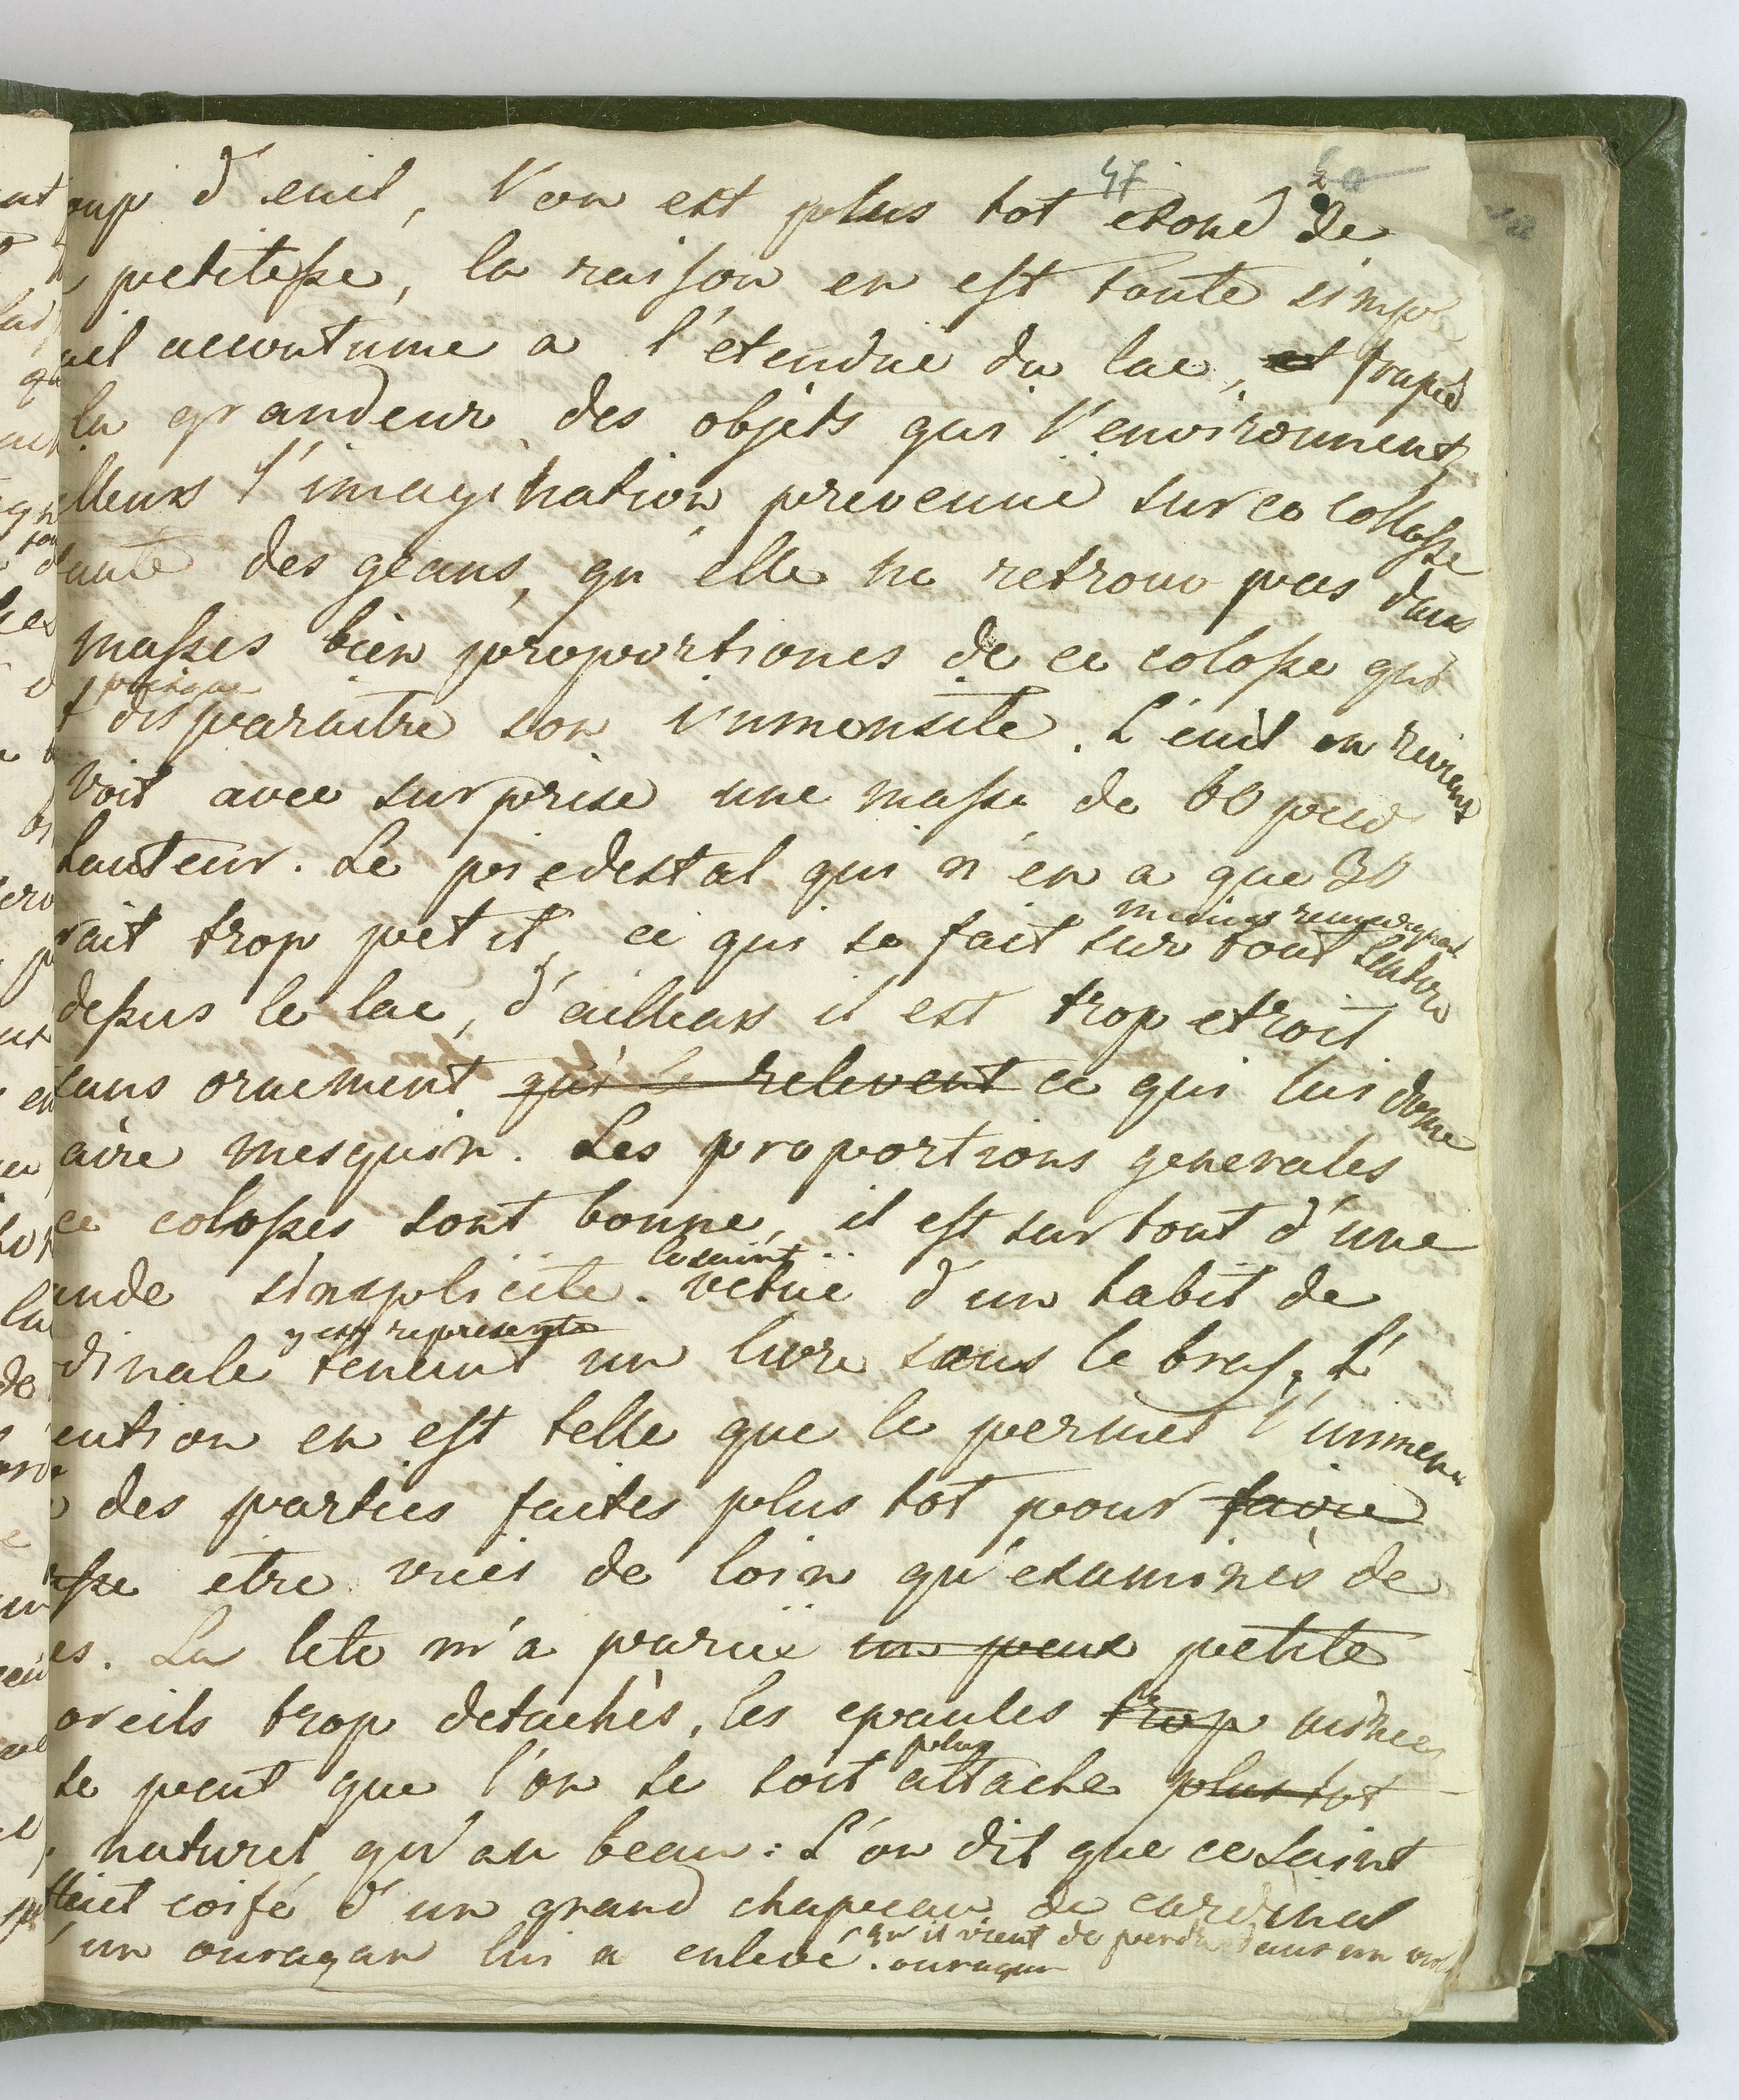 47
oup d'euil, l'on est plus tot etoné de
petitesse, la raison en est toute simple
uil accoutume a l'etendue du lac, et frapé
la grandeur des objets qui l'environnent
illeurs l'imagination prevenue sur ce colosse
des geans, qu'elle ne retrouv pas dans
masses bien proportiones de ce colosse qui
presque
t disparaitre son immensité. L'euil en
voit avec surprise une masse de 60 pied
hauteur. Le piedestal qui n'en a que 30
moins remarquer
rait trop petit, ce qui se fait sur tout
dessus le lac, d'ailleurs il est trop etroit
sans ornement qui le relevent ce qui lui done
aire mesquin. Les proportions generales
ce colosses sont bonne, il est sur tout d'une
le saint
ande simplicité. vetue d'un habit de
y est representé
dinale tenant un livre sous le bras. L'
ention en est telle que le permet l'immen
des parties faites plus tot pour faire
sse etre vues de loin qu'examinés de
es. La tete m'a parue un peux petite
oreils trop detachés, les epaules trop
plus
se peut que l'on se soit attaché plus tot
naturel qu'au beau: L'on dit que ce saint
etait coifé d'un grand chapeau de cardinal
qu'il vient de perdre dans un
'un ouragan lui a enlevé. ouragan